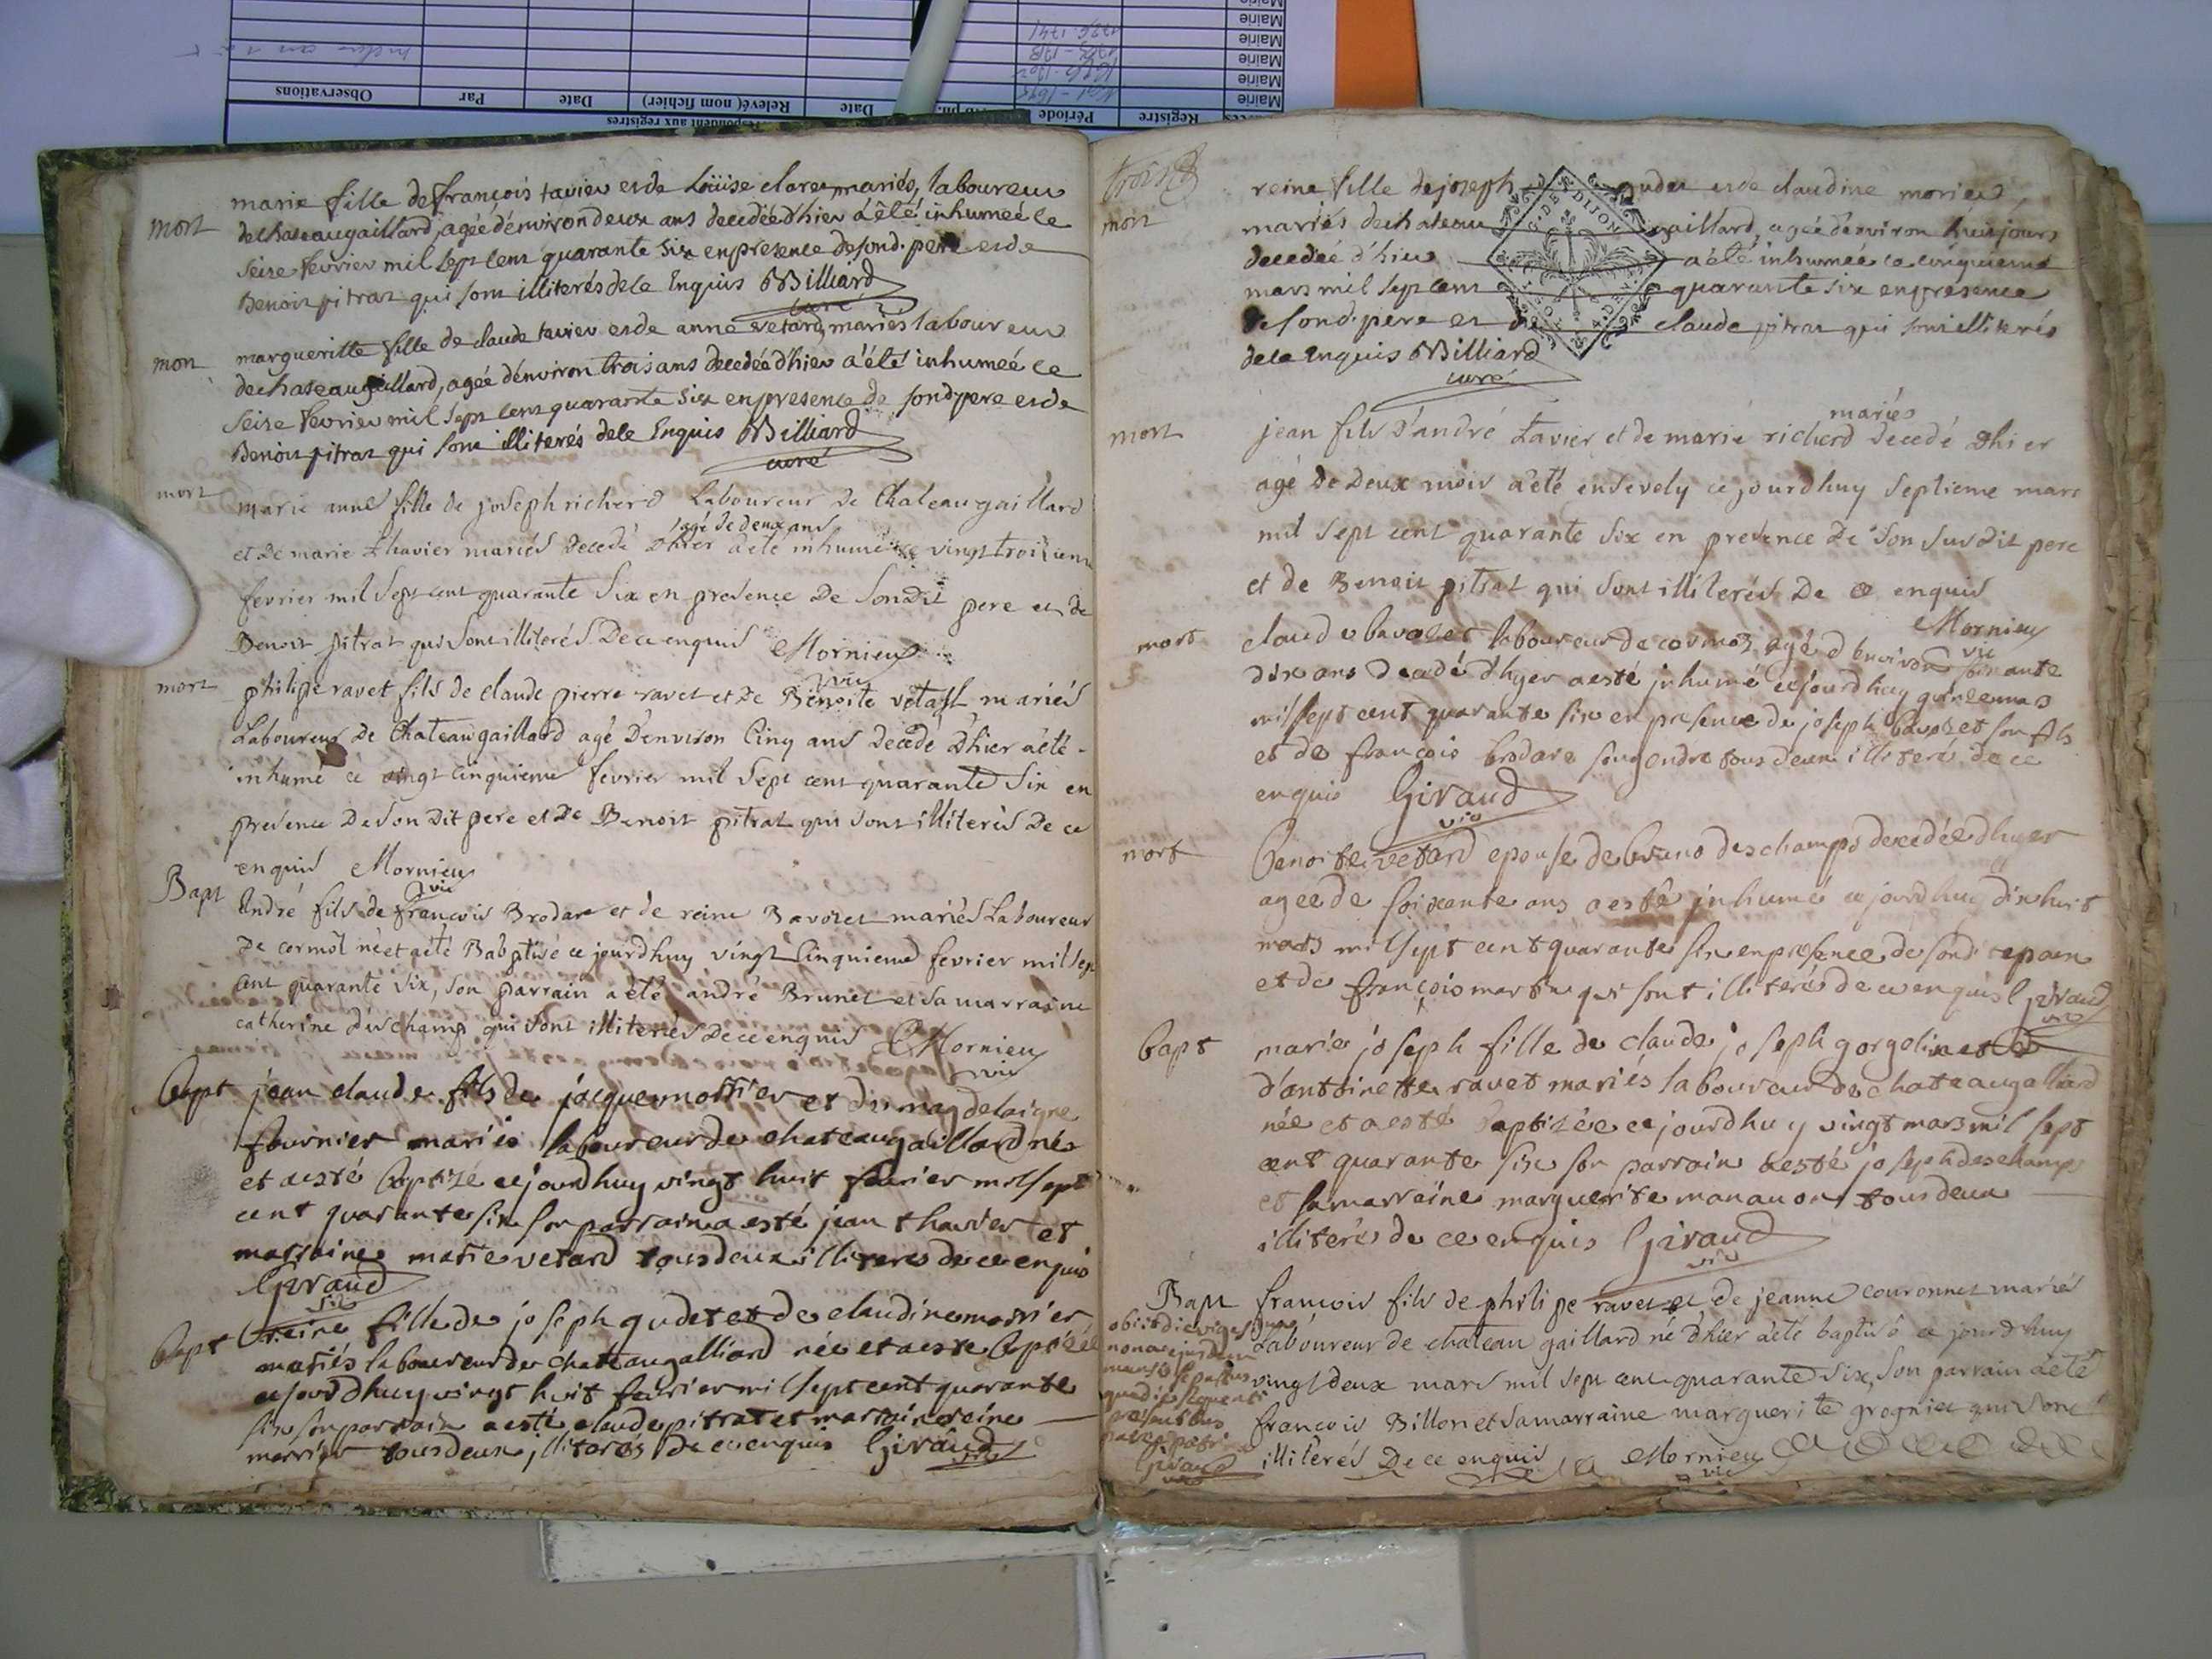 Mairie
Mairie
Mairie
Mairie
Mairie
1726-1741
1691-1695
Observations
Par
Date
Relevé( nom fichier)
Date
Période
Registre
respondent aux registres
mort
marie fille de françois tavier et de Loüise claret mariés, laboureur
de chateaugaillard, agée d'environ deux ans decedée d'hier a êté inhumeé ce
seize fevrier mil sept cent quarante six en presence de sond. pere et de
Benoit pitrat qui sont illiterés de ce Enquis Billiard
curé
mort
margueritte fille de claude tavier et de anne vetard mariés laboureur
de chateaugaillard, agée d'environ trois ans decedée d'hier a été inhumeé ce
seize fevrier mil sept cent quarante six en presence de sond pere et de
Benoit pitrat qui sont illiterés de ce Enquis Billiard
curé
mort
marie anne fille de joseph richerd Laboureur de Chateaugaillard
agé de deux ans
et de marie thavier mariés decedé d'hier a eté inhumé ce vingt troisieme
fevrier mil sept cent quarante Six en presence de Son Dit pere et de
Benoit pitrat qui sont illiterés De ce enquis Mornieu
vic
mort
philipe ravet fils de claude pierre ravet et De Benoite vetard mariés
Laboureur De Chateaugaillard agé D'environ Cinq ans Decedé D'hier a eté
inhumé ce vingt cinquieme fevrier mil Sept cent quarante Six en
presence De Son Dit pere et De Benoit pitrat qui sont illiterés De ce
enquis Mornieu
vic
Bapt
André fils de françois Brodare et de reine Bavozet mariés Laboureur
De cormoz né et a eté Babptisé ce jourdhuy vingt Cinquieme fevrier mil sept
cent quarante Six, Son parrain a eté andré Brunet et Sa marraine
catherine deschamp qui sont illiterés De ce enquis Mornieu
vic
Bapt
jean claude fils de jacque morrier et de magdelaigne
fournier mariés laboureur de chateaugaillard né
et a esté baptizé ce jourdhuy vingt huit fevrier mil sept
cent quarante six son parrain a esté jean thavier et
marraine marie vetard tous deux illiteres de ce enquis
Giraud
vic
Bapt
reine fille de joseph gudet et de claudine morrier
mariés laboureur de chateaugalliard née et a esté baptizée
ce jourdhuy vingt huit fevrier mil sept cent quarante
six son parrain a esté claude pitrat et marraine reine
morrier tous deux illiterés de ce enquis Giraud
vic
trois
mort
reine fille de joseph gudet et de claudine morier,
mariés de chateau gaillard, agée d'environ huit jours
decedée d'hier a été inhumée ce cinquieme
mars mil sept cent quarante six en presence
de sond. pere et de claude pitrat qui sont illiterés
de ce Enquis Billiard
curé
G. DE DIJON
mort
mariés
jean fils d'andré tavier et de marie richerd decedé d'hier
agé De Deux mois a eté ensevely ce jourdhuy Septieme mars
mil sept cent quarante Six en presence De Son Susdit pere
et de Benoit pitrat qui sont illiterés De ce enquis
Mornieu
vic
mort
claude bavozet laboureur de cormoz agé d'environ soixante
dix ans decedé d'hyer a esté inhumé ce jourdhuy quinze mars
mil sept cent quarante six en presence de joseph bavozet son fils
et de françois brodare son gendre tous deux illiterés de ce
enquis Giraud
vic
mort
Benoite vetard epouse de bruno deschamps decedée d'hyer
agée de soixante ans a esté inhumé ce jourdhuy dix huit
mars mil sept cent quarante six en presence de sond. epoux
et de françois martin qui sont illiterés de ce enquis Giraud
vic
bapt
marie joseph fille de claude joseph gorgelin et
d'antoinette ravet mariés laboureur de chateaugalliard
née et a esté baptizée ce jourdhuy vingt mars mil sept
cent quarante six son parrain a esté joseph deschamps
et sa marraine marguerite manauon tous deux
illiterés de ce enquis Giraud
vic
Bapt
francois fils de philipe ravet et de jeanne couronnet mariés
Laboureur de chateau gaillard né d'hier a eté baptisé ce jourdhuy
vingt deux mars mil sept cent quarante Six, Son parrain a eté
francois Billon et Sa marraine marguerite grognier qui sont
illiterés De ce enquis Mornieu
vic
obiit die vigesima
nona ejusdem
mensis sepultus
que die sequenti
presentibus
patre
Giraud
vic